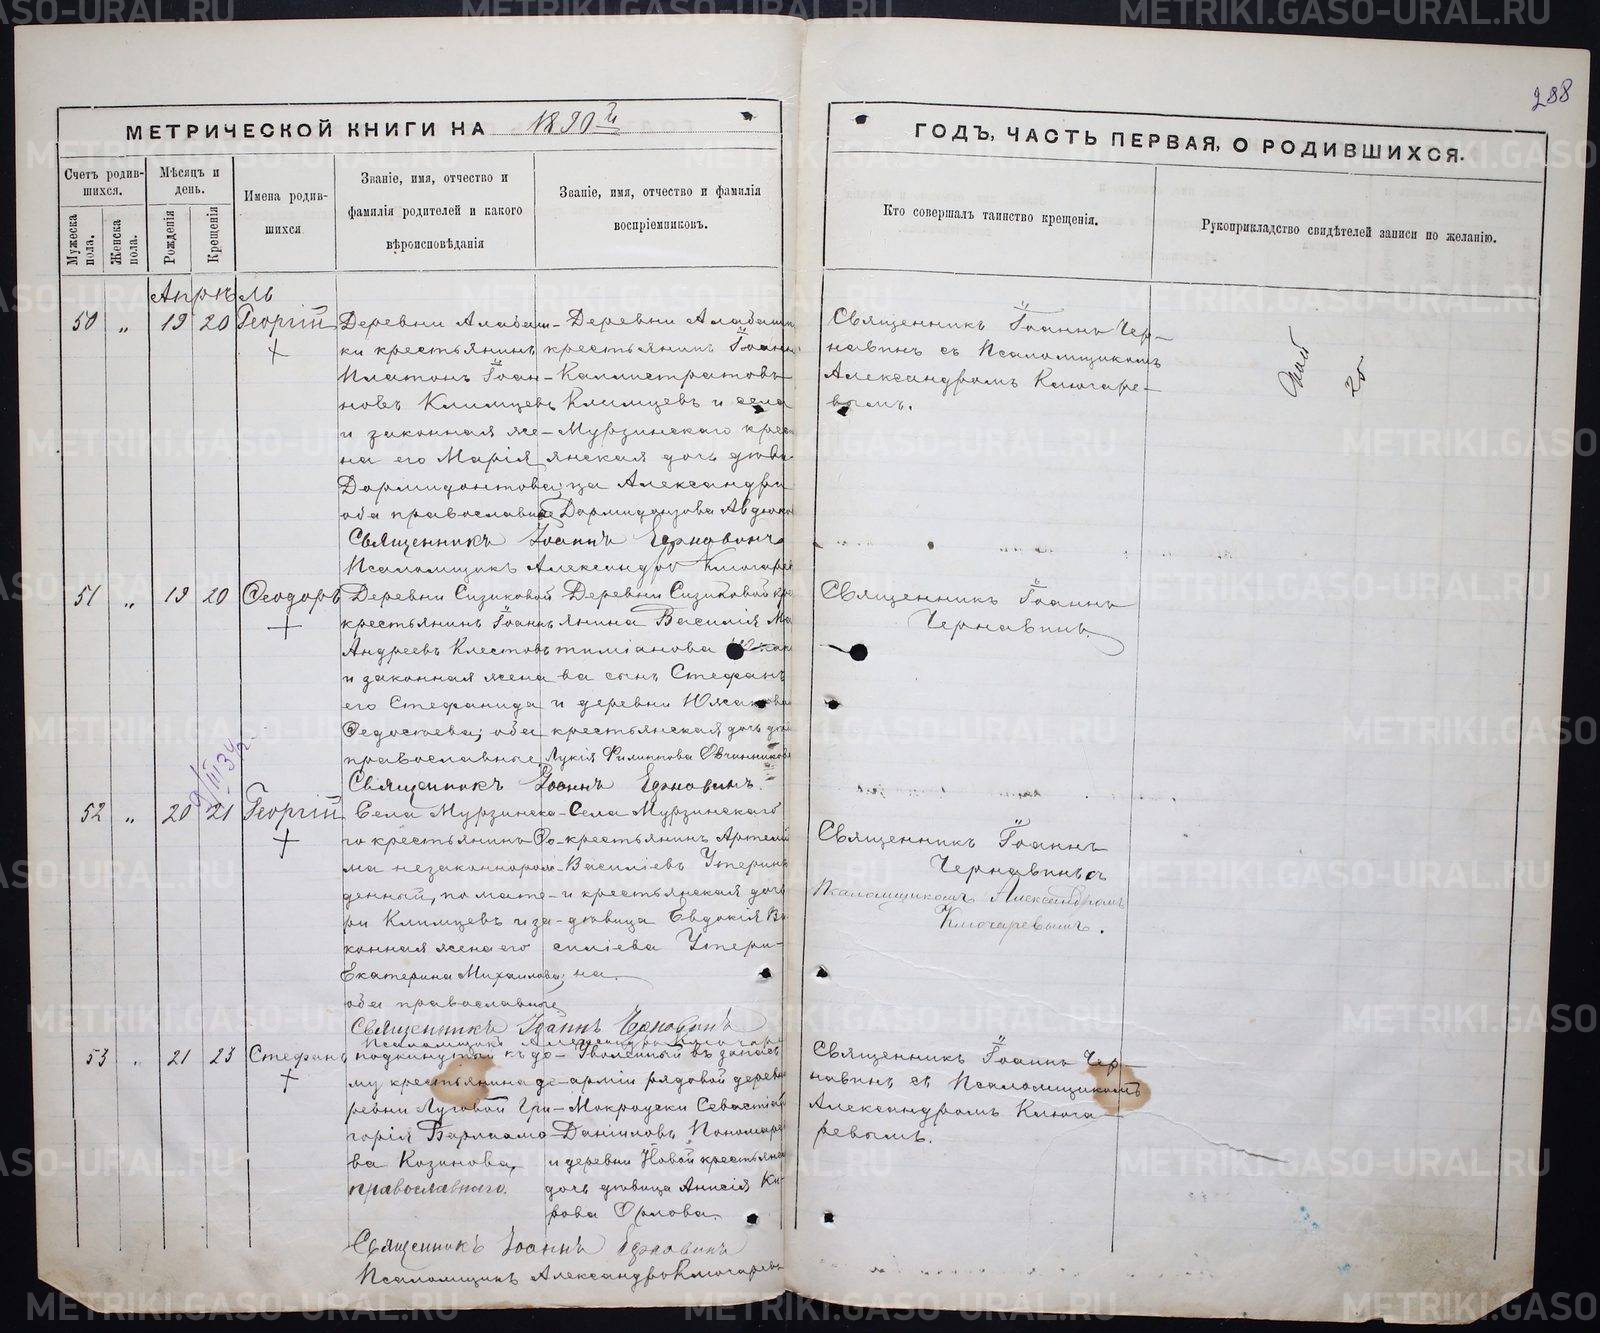 288
МЕТРИЧЕСКОЙ КНИГИ НА 1890й
ГОДЪ, ЧАСТЬ ПЕРВАЯ, О РОДИВШИХСЯ.
Счетъ родив-
шихся.
Мужеска
пола.
Женска
пола.
Мѣсяцъ и
день.
Рожденія
Крещенія
Имена родив-
шихся.
Званіе, имя, отчество и
фамилія родителей и какого
вѣроисповѣданія
Званіе, имя, отчество и фамилія
воспріемниковъ.
Кто совершалъ таинство крещенія.
Рукоприкладство свидѣтелей записи по желанію.
Апрѣль
50 „ 19 20 Георгій
Деревни Алабаш-
ки крестьянинъ
Платонъ Іоан-
новъ Климцевъ
и законная же-
на его Марія
Дормидонтова;
оба православные
Деревни Алабашки
крестьянинъ Іоаннъ
Каллистратовъ
Климцевъ и села
Мурзинскаго крест
янская дочь дѣви
ца Александра
Дормидонтова
Священникъ Іоаннъ Чернавинъ
Псаломщикъ Александръ Ключарев
Священникъ Іоаннъ Чер-
навинъ съ Псаломщикомъ
Александромъ Ключаре-
вымъ.
51 „ 19 20 Ѳеодоръ
Деревни Сизиковой
крестьянинъ Іоаннъ
Андреевъ Клестовъ
и законная жена
его Стефанида
Ѳедосѣева; оба
православные
Деревни Сизиковой кре
янина Василія Ма
тиміанова
ва сынъ Стефанъ
и деревни Южаковой
крестьянская дочь дѣв
Лукія Филиппова Овчинникова
Священникъ Іоаннъ Чернавинъ.
Священникъ Іоаннъ
Чернавинъ.
52 „ 20 21 Георгій
Села Мурзинска-
го крестьянинъ Ѳо-
ма незаконнорож
денный, по мате-
ри Климцевъ и за-
конная жена его
Екатерина Михаилова;
оба православные
Села Мурзинскаго
крестьянинъ Артемій
Василіевъ Утеринъ
и крестьянская дочь
дѣвица Евдокія Ва
силіева Утери-
на.
Священникъ Іоаннъ Чернавинъ
Псаломщикъ Александръ Ключаре
Священникъ Іоаннъ
Чернавинъ съ
Псаломщикомъ Александромъ
Ключаревымъ.
53 „ 21 23 Стефанъ
подкинутый къ до-
му крестьянина де-
ревни Луговой Гри-
горія Варлаамо-
ва Козинова,
православнаго.
Уволенный въ запасъ
арміи рядовой деревни
Мокроуски Севастіан
Даніиловъ Пономаре
и деревни Новой крестьянск
дочь дѣвица Анисія Ки-
рова Орлова.
Священникъ Іоаннъ Чернавинъ
Псаломщикъ Александръ Ключаревъ
Священникъ Іоаннъ Чер-
навинъ съ Псаломщикомъ
Александромъ Ключа-
ревымъ.
METRIKI.GASO-URAL.RU